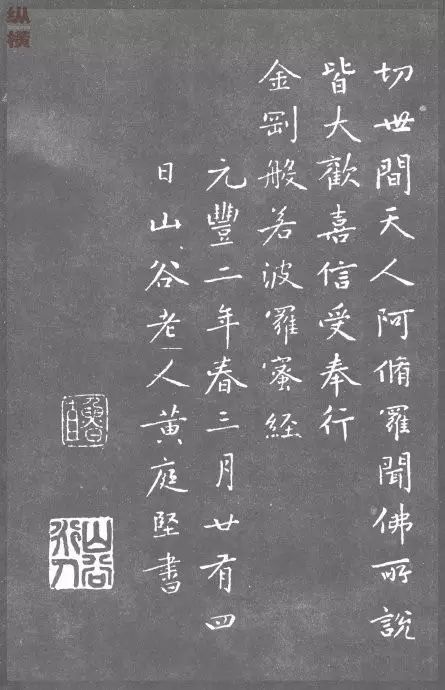 切世間天人阿脩羅聞佛所說
皆大歡喜信受奉行
金剛般若波羅蜜経
元豐二年春三月廿有四
日山谷老人黃庭堅書
魯直
山谷
纵横